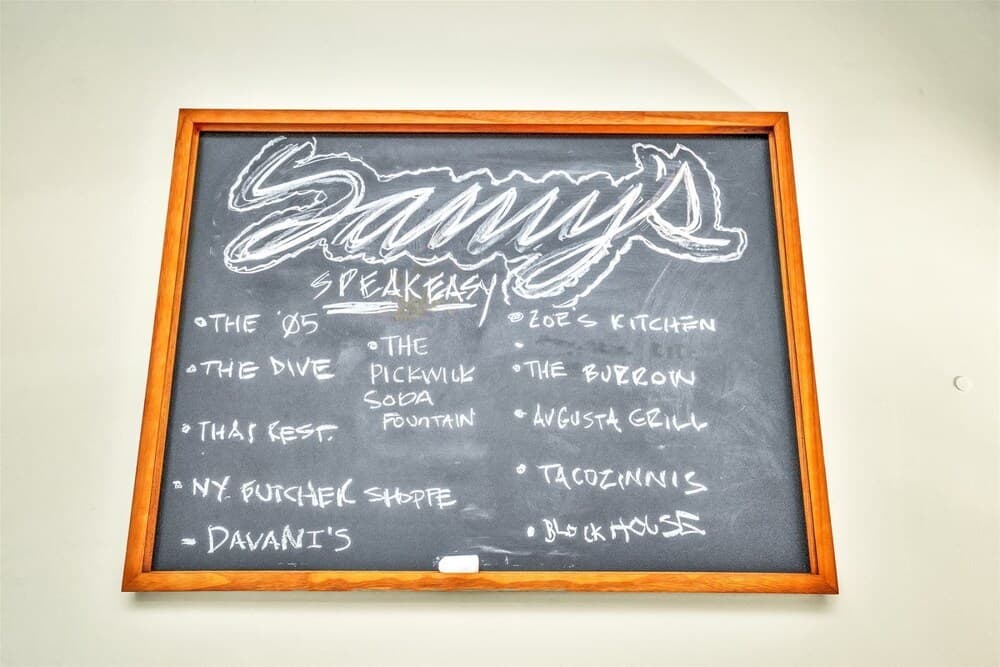 Sammy's
SPEAKEASY
• THE '05
• THE DIVE
• THAI REST.
• NY BUTCHER SHOPPE
- DAVANI'S
• THE
PICKWICK
SODA
FOUNTAIN
• ZOE'S KITCHEN
•
• THE BURROW
• AUGUSTA GRILL
• TACOZINNIS
• BLOCKHOUSE